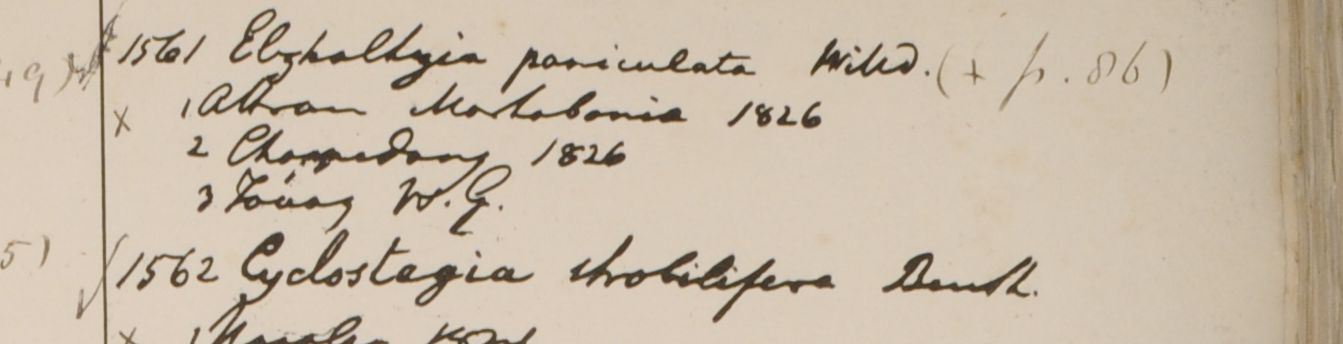 1561 Elsholtzia paniculata Willd. (+ p. 86)
x 1 Atran Martabania 1826
2 Chappedong 1826
3 Tavoy W.G.
5) 1562 Cyclostegia strobilifera Benth.